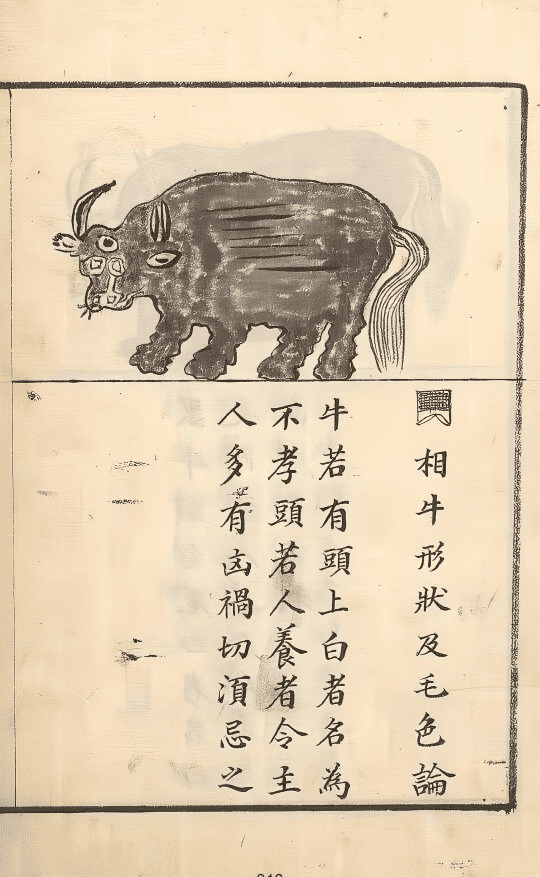 相牛形狀及毛色論
牛若有頭上白者名為
不孝頭若人養者令主
人多有凶禍切須忌之